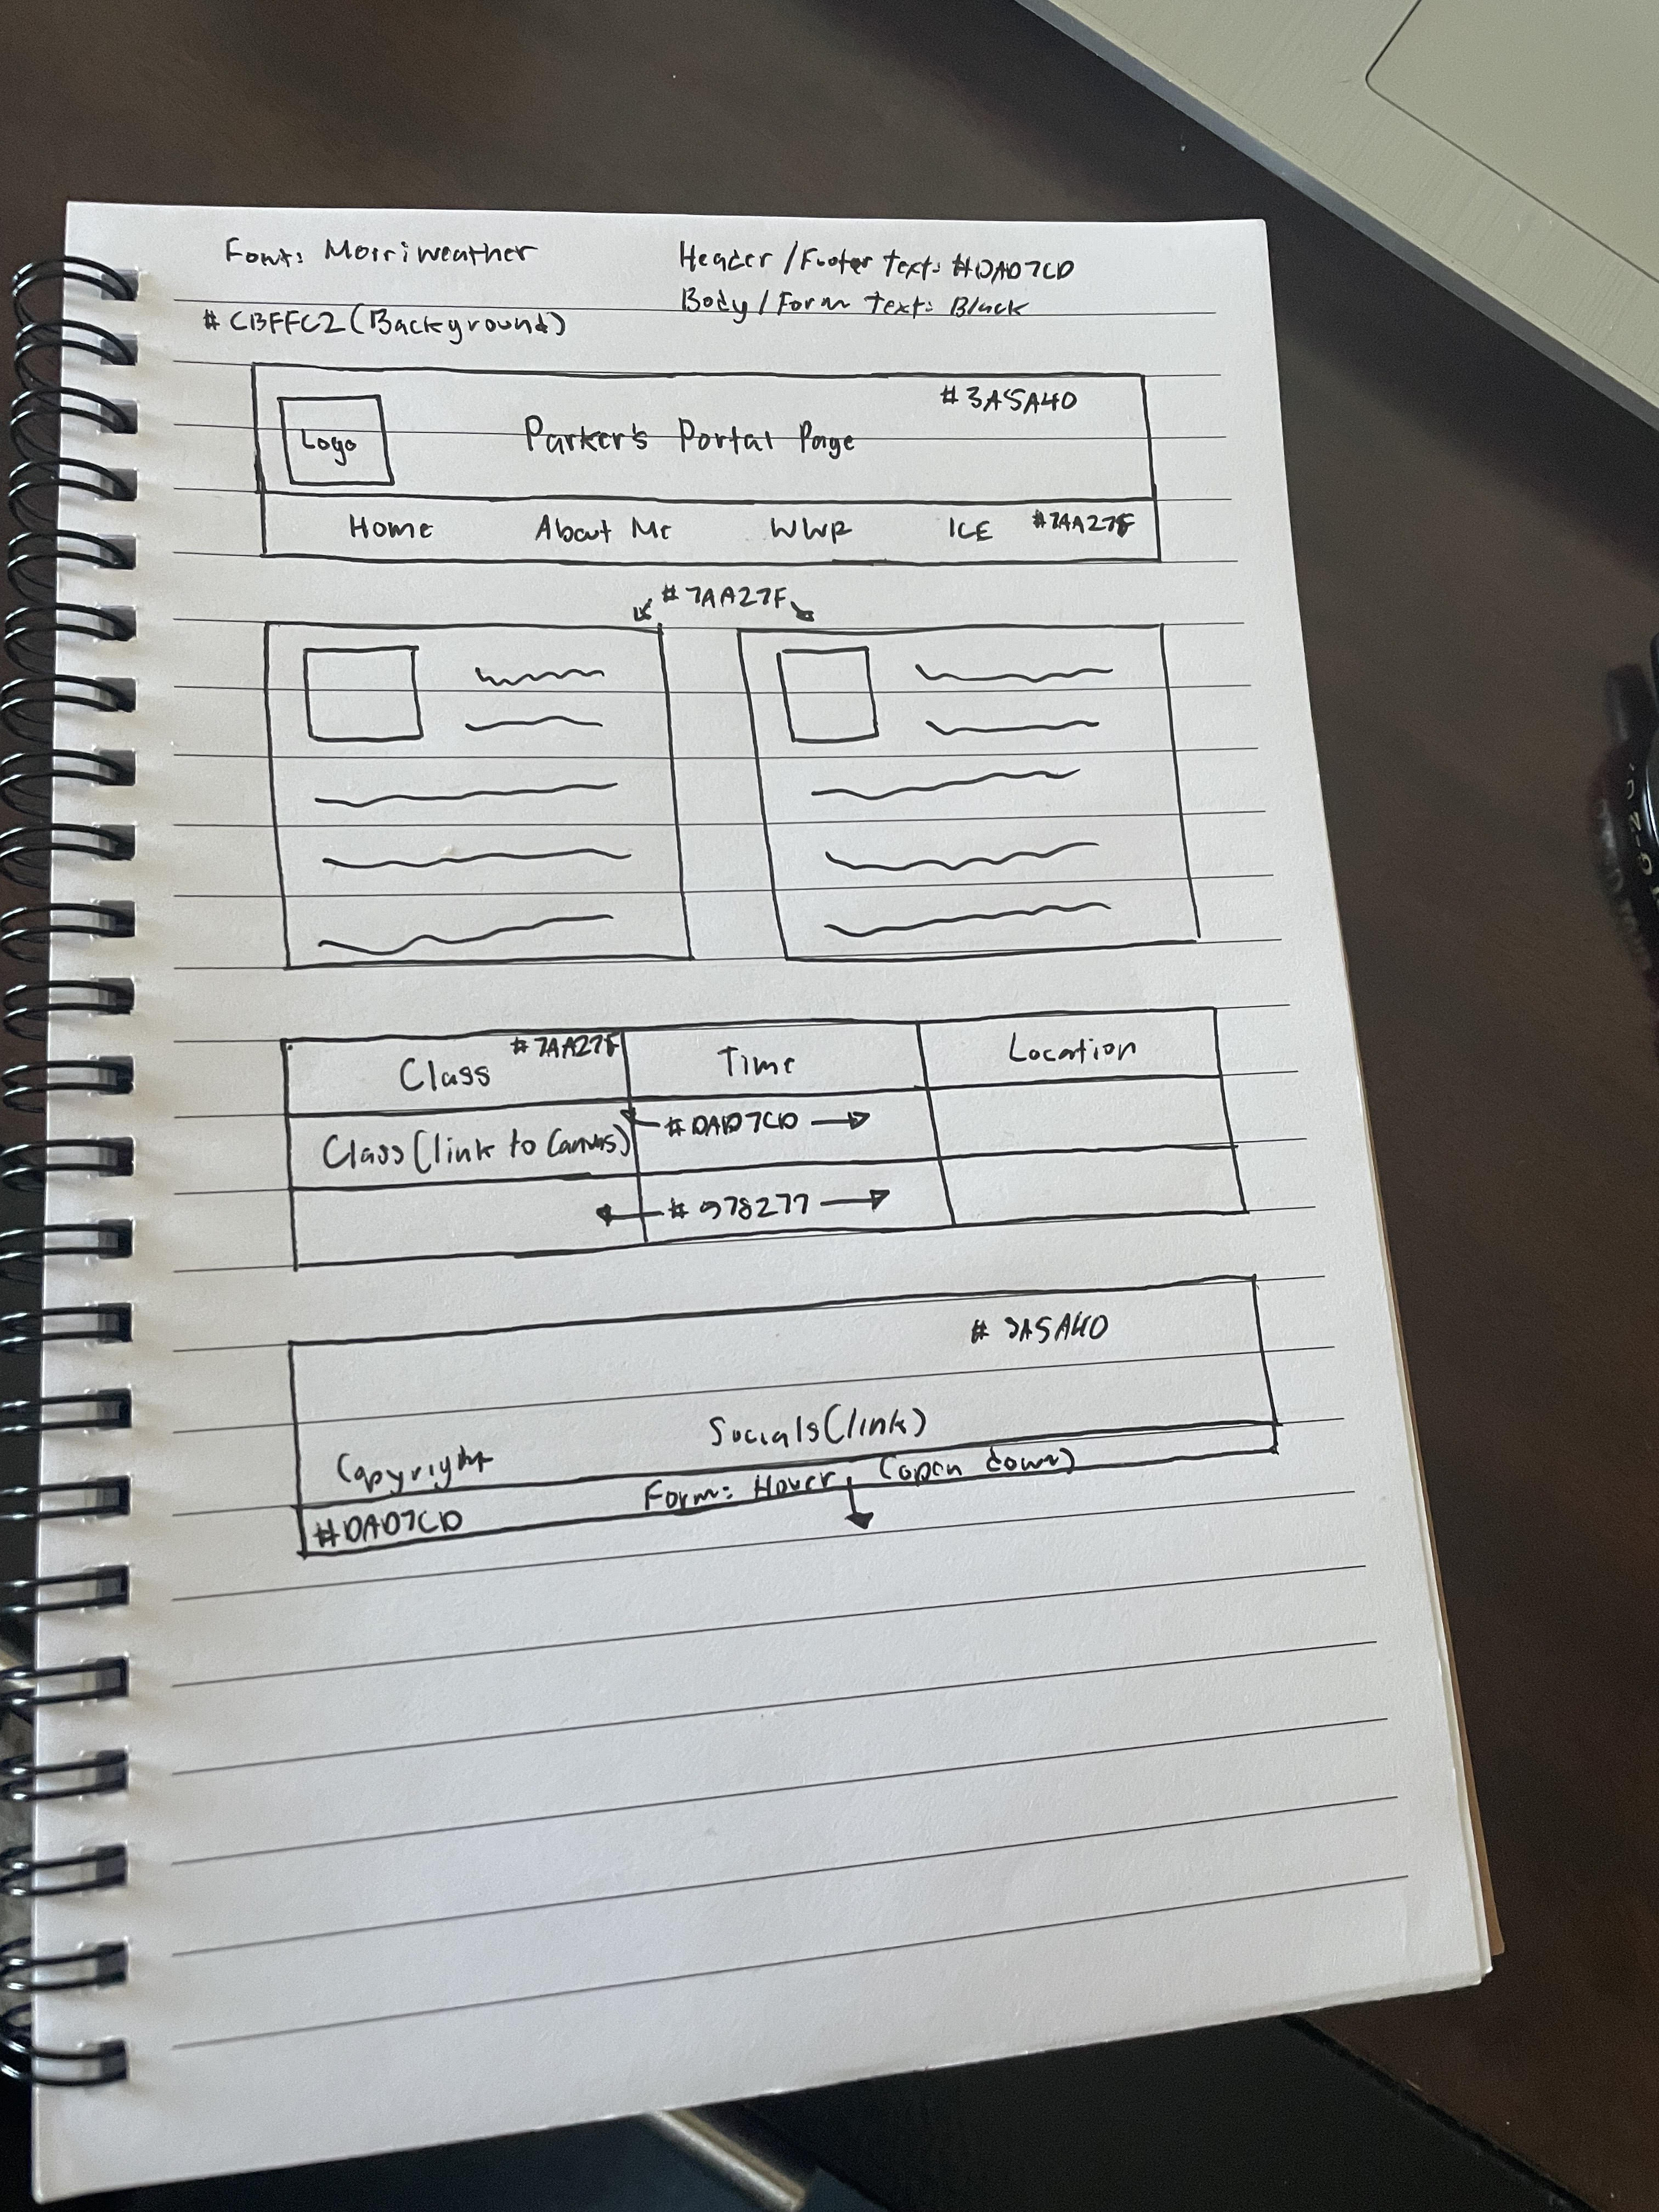 Font: Merriweather
Header/Footer text: #DAD7CD
Body/Form text: Black
#CBFFC2(Background)
#3A5A40
Logo
Parker's Portal Page
Home About Me WWP ICE #7AA27F
#7AA27F
#7AA27F
Class Time Location
#DAD7CD
Class(link to Canvas)
#978277
#3A5A40
Socials(link)
Copyright
Form: Hover (open down)
#DAD7CD